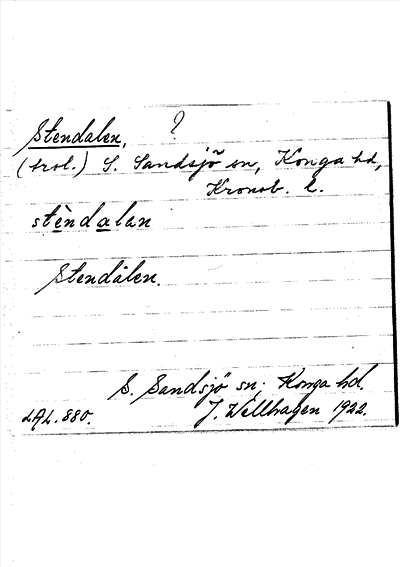 Stendalen, ?
(trol.) S. Sandsjö sn, Konga hd,
Kronob. l.
stèndalan
Stendålen.
S. Sandsjö sn; Konga hd.
LAL. 880. J. Wellhagen 1922.